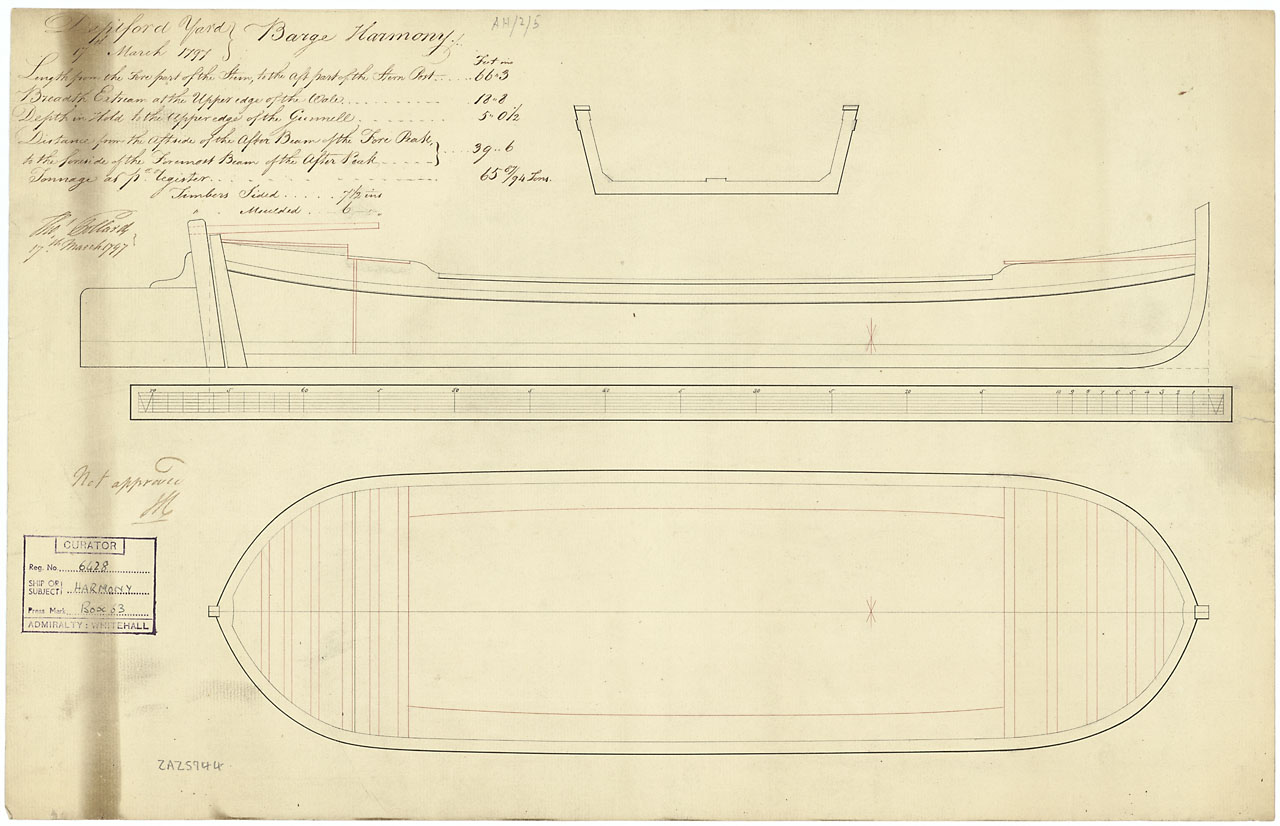 Deptford Yard
17th March 1797
Barge Harmony.
AH/2/5
Feet ins
Length from the Fore part of the Stem, to the Aft part of the Stern Post ... 66"3
Breadth Extream at the Upper edge of the Wale ... 18"8
Depth in Hold to the Upper edge of the Gunnell ... 5"0½
Distance from the Aftside of the After Beam of the Fore Peak,
to the foreside of the Foremost Beam of the After Peak ... 39"6
Tonnage as pr. Register ... 65 67/94 Tons.
Timbers Sided ... 7½ ins
" Moulded ... 6 "
Thos. Pollard
17th March 1797
70 5 60 5 50 5 40 5 30 5 20 5 10 9 8 7 6 5 4 3 2 1
Not approved
CURATOR
Reg. No. 6428
SHIP OR SUBJECT HARMONY
Press Mark Box 63
ADMIRALTY: WHITEHALL
ZAZ5744